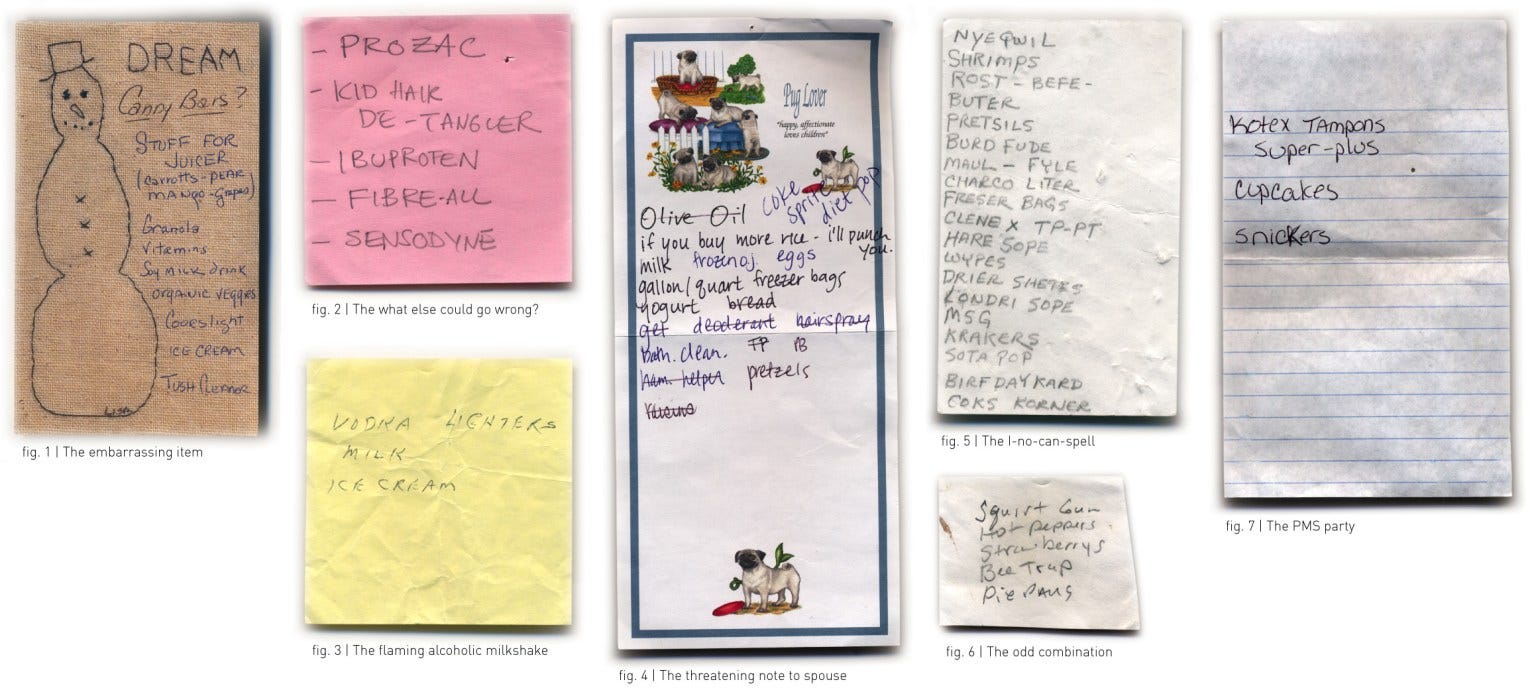 DREAM
Canny Bars?
STUFF FOR
JUICER
(carrotts-PEAR
MANGO-Grapes)
Granola
Vitamins
Soy Milk drink
ORGANIC VEGGIES
Coors light
ICE CREAM
TUSH CLEANER
LISA
fig. 1 | The embarrassing item
- PROZAC
- KID HAIR
DE-TANGLER
- IBUPROTEN
- FIBRE-ALL
- SENSODYNE
fig. 2 | The what else could go wrong?
VODKA LIGHTERS
MILK
ICE CREAM
fig. 3 | The flaming alcoholic milkshake
Pug Lover
"happy, affectionate
loves children"
Olive Oil coke sprite diet pop
if you buy more rice - i'll punch you.
milk frozen oj. eggs
gallon/quart freezer bags
yogurt bread
get deoderant hairspray
bath. clean. TP PB
ham. helper pretzels
fig. 4 | The threatening note to spouse
NYEQWIL
SHRIMPS
ROST-BEFE-
BUTER
PRETSILS
BURD FUDE
MAUL-FYLE
CHARCO LITER
FRESER BAGS
CLENEX TP-PT
HARE SOPE
WYPES
DRIER SHETES
LONDRI SOPE
MSG
KRAKERS
SOTA POP
BIRFDAY KARD
COKS KORNER
fig. 5 | The I-no-can-spell
Squirt Gun
Hot Peppers
Strawberrys
Bee Trap
Pie Pans
fig. 6 | The odd combination
Kotex Tampons
super-plus
cupcakes
snickers
fig. 7 | The PMS party